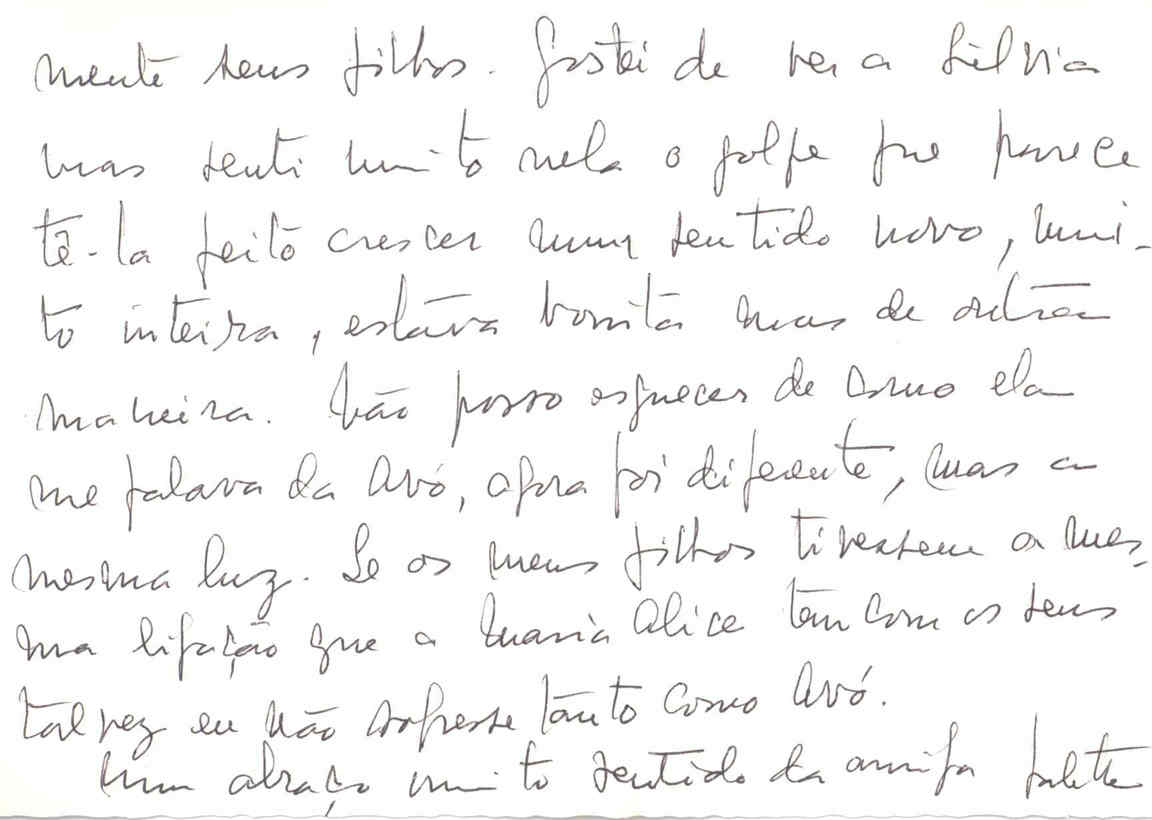 mente seus filhos. Gostei de ver a Sílvia
mas senti muito nela o golpe que parece
tê-la feito crescer num sentido novo, mui-
to inteira, estava bonita mas de outra
maneira. Não posso esquecer de como ela
me falava da Avó, agora foi diferente, mas a
mesma luz. Se os meus filhos tivessem a mes-
ma ligação que a Maria Alice tem com os seus
talvez eu não sofresse tanto como Avó.
Um abraço muito sentido da amiga